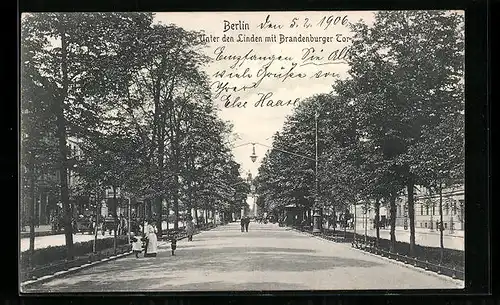 Berlin den 5. 2. 1906.
Unter den Linden mit Brandenburger Tor
Empfangen Sie Alle
viele Grüße von
Else Haase